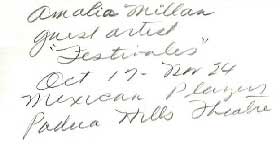 Amalia Millan
guest artist
"Festivales"
Oct 17 - Nov 24
Mexican Players
Padua Hills Theatre